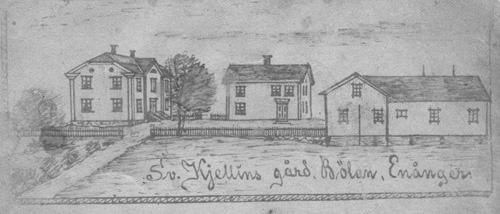 Sv. Kjellins gård. Bölen, Enånger.